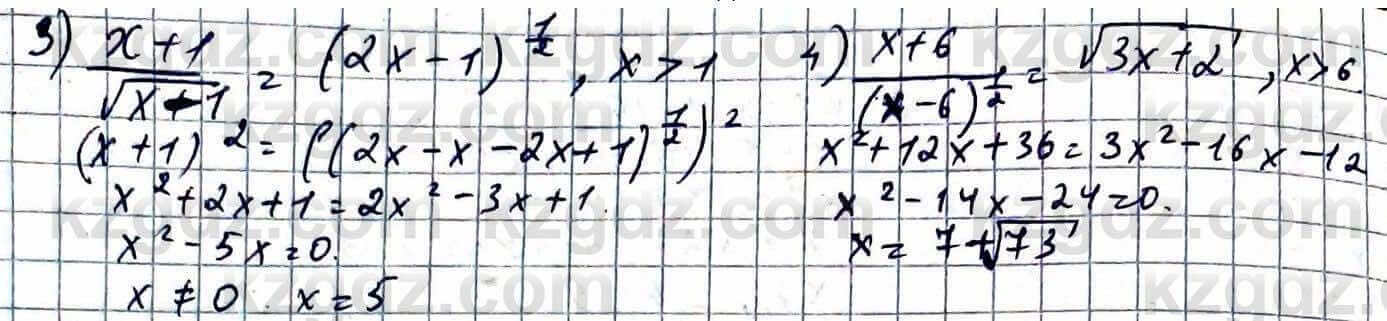 3) (x+1)/√(x-1) = (2x-1)^(1/2), x>1
(x+1)^2 = ((2x-x-2x+1)^(1/2))^2
x^2+2x+1=2x^2-3x+1.
x^2-5x=0.
x≠0. x=5
4) (x+6)/(x-6)^(1/2) = √(3x+2), x>6
x^2+12x+36=3x^2-16x-12
x^2-14x-24=0.
x= 7+√73
kzgdz.com